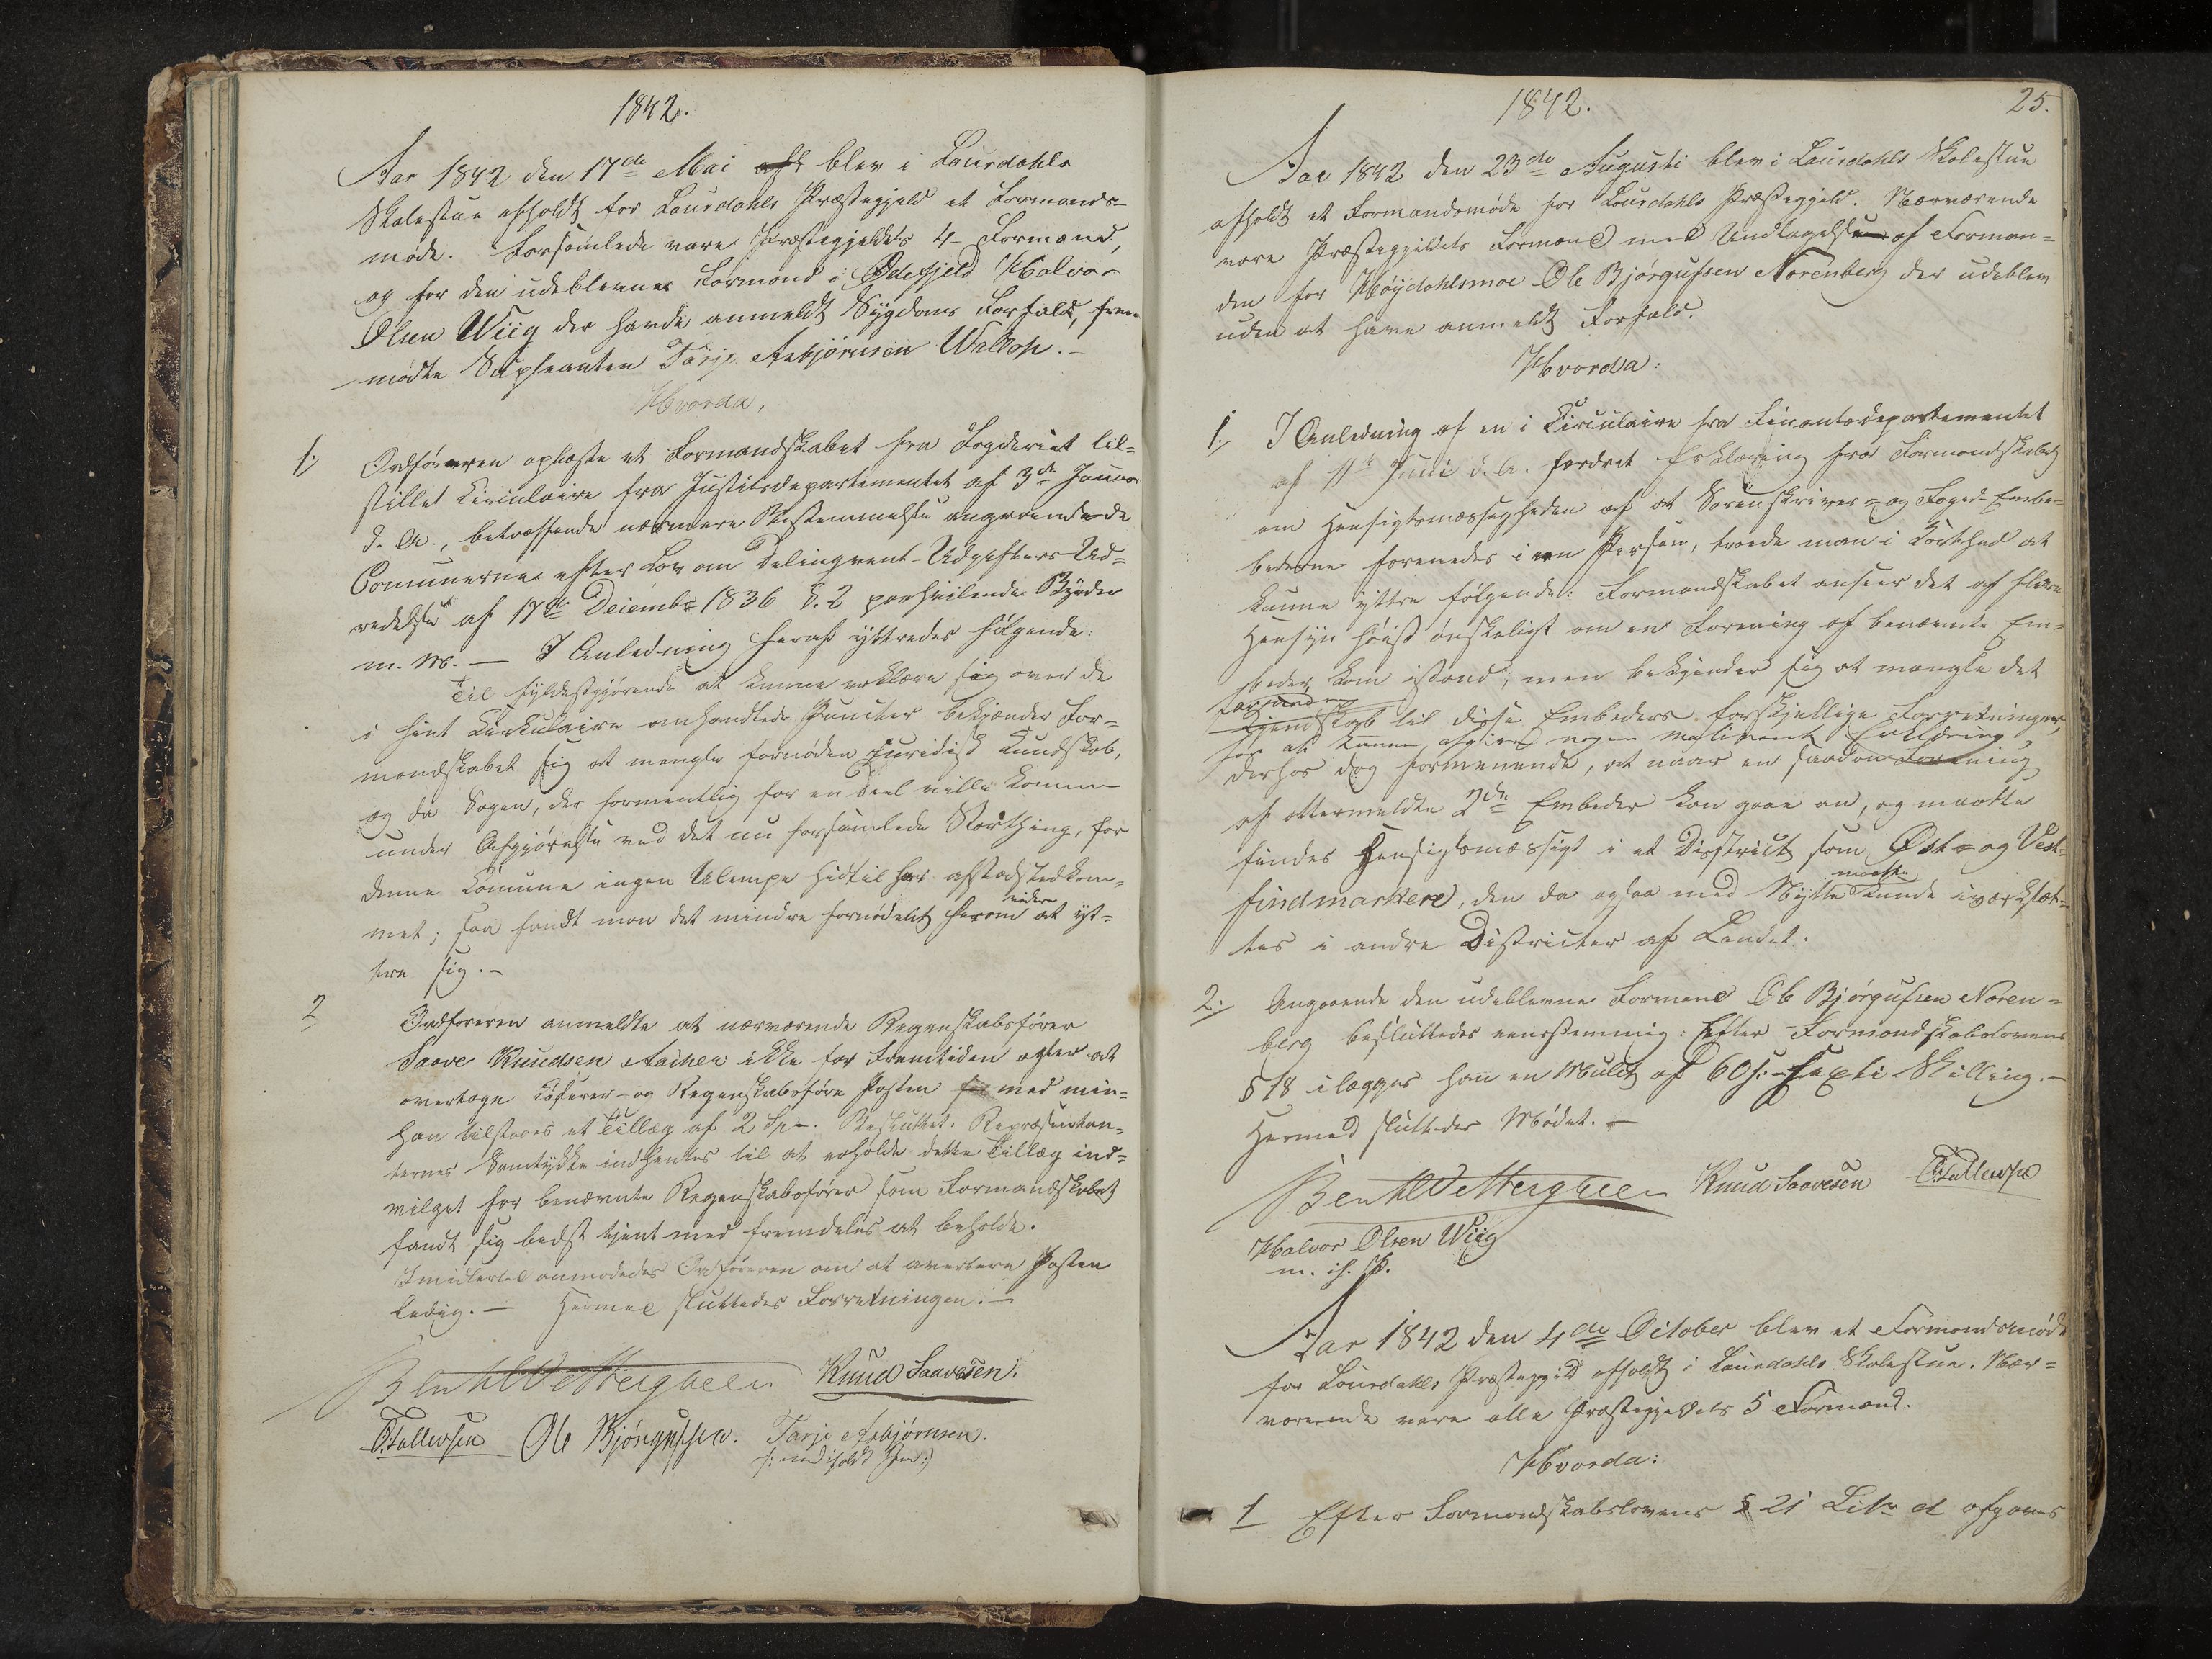 1842.
Aar 1842 den 17de Mai afh blev i Laurdahls
Skolestue afholdt for Laurdahls Præstegjeld et Formands-
møde. Forsamlede vare Præstegjeldets 4 Formænd,
og for den udeblevne Formand i Ødefjeld Halvor
Olsen Wiig der havde anmeldt Sygdoms Forfald, frem
mødte Supleanten Tarje Asbjørnsen
Hvorda,
1. Ordføreren oplæste et Formandskabet fra Fogderiet til-
stillet Circulaire fra Justitsdepartementet af 3de Januar
d. A., betræffende nærmere Bestemmelse angaaende de
Comunerne efter Lov om Delinqvent-Udgifters Ud-
redelse af 17de Decembr 1836 §. 2 paahvilende Byrder
m. M. — I Anledning heraf yttredes følgende:
Til fyldestgjørende at kunne erklære sig over de
i hint Cirkulaire omhandlede Puncter bekjænder For-
mandskabet sig at mangle fornøden juridisk Kundskab,
og da Sagen, der formentlig for en Deel ville komme
under Afgjørelse ved det nu forsamlede Storthing, for
denne Comune ingen Ulempe hidtil har afstedkom-
videre
met; saa fandt man det mindre fornødent herom at yt-
tre sig.-
2 Ordføreren anmeldte at nærværende Regenskabsfører
Saave Knudsen ikke for Fremtiden agter at
overtage Casserer- og Regenskabsføre Posten med min-
han tilstaaes et Tillæg af 2 Sp. Besluttet: Repræsentan-
ternes Samtykke indhentes til at erholde dette Tillæg ind-
vilget for benævnte Regenskabsfører som Formandskabet
fandt sig bedst tjent med fremdeles at beholde.
Imidlertid anmodedes Ordføreren om at avertere Posten
ledig. — Hermed sluttedes Forretningen. —
Bent Wettergreen Knud Saavesen.
Ole Bjørgufsen. Tarje Asbjørnsen.
1842. 25.
Aar 1842 den 23de Augusti blev i Laurdahls Skolestue
afholdt et Formandsmøde for Laurdahls Præstegjeld. Nærværende
vare Præstegjeldets Formænd med Undtagelse af Forman-
den for Høydahlsmoe Ole Bjørgufsen Norenberg der udeblev
uden at have anmeldt Forfald.
Hvorda:
1. I Anledning af en i Circulaire fra Finantsdepartementet
af 11te Juni d. A. fordret Erklæring fra Formandskabet
om Hensigtsmæssigheden af at Sorenskriver- og Foged-Embe-
bederne forenedes i een Person, troede man i Korthed at
kunne yttre følgende: Formandskabet anseer det af flere
Hensyn høist ønskeligt om en Forening af benævnte Em-
beder kom istand; men bekjender sig at mangle det
Kjendskab til disse Embeders forskjellige Forretninger,
for at kunne afgive nogen motiveret Erklæring,
derhos dog formenende, at naar en saadan Forening
af ottermeldte 2de Embeder kan gaae an, og maatte
findes Hensigtsmæssigt i et Disstrict som Øst- og Vest-
maatte
findmarken, den da ogsaa med Nytte kunde iværksæt-
tes i andre Districter af Landet.
2. Angaaende den udeblevne Formand Ole Bjørgufsen Noren-
berg besluttedes eenstemmig: Efter Formandskabslovens
§ 18 ilægges han en Mulct af 60 s: - sexti Skilling. -
Hermed sluttedes Mødet. -
Bent Wettergreen Knud Saavesen
Halvor Olsen Wiig
m. i. P.
Aar 1842 den 4de October blev et Formandsmøde
for Laurdahls Præstegjeld afholdt i Laurdahls Skolestue. Nær-
værende vare alle Præstegjeldets 5 Formænd.
Hvorda:
1 Efter Formandskabslovens § 21 Litr d afgaves